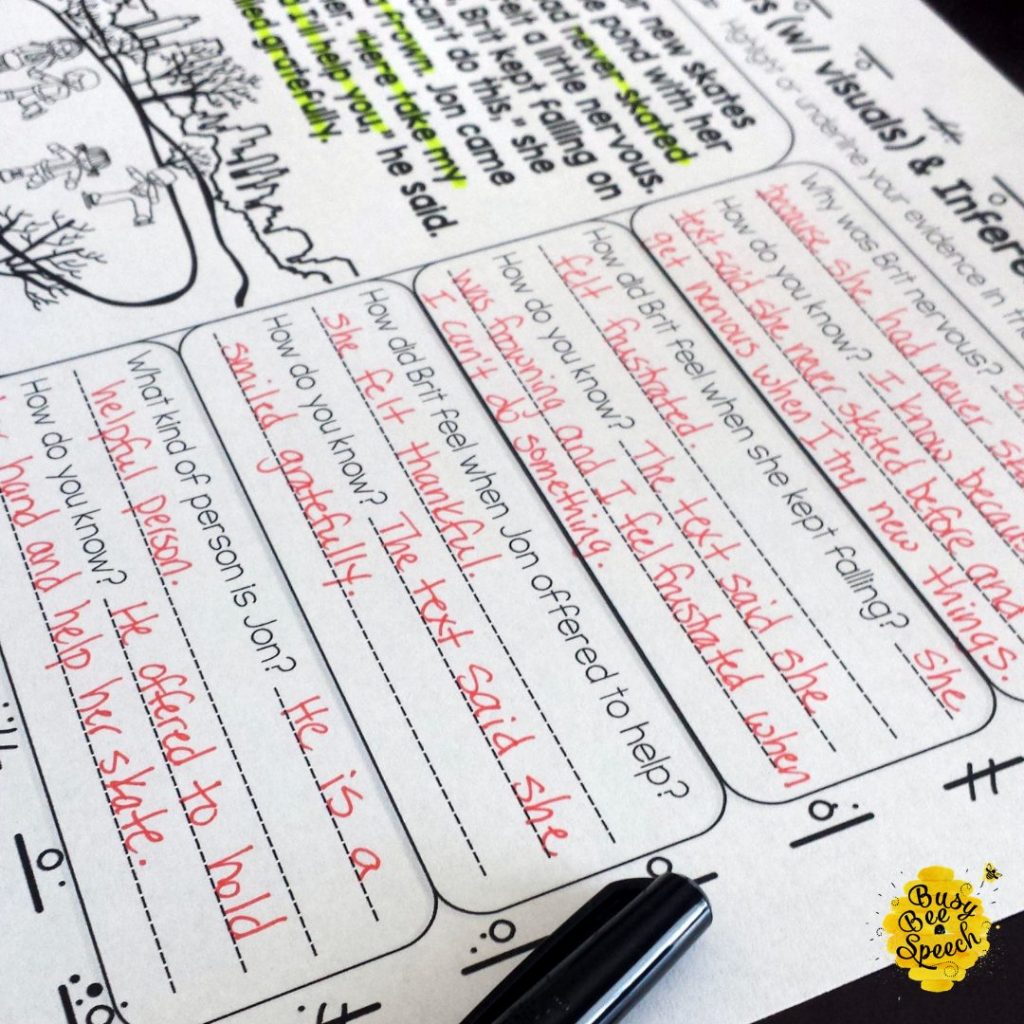 rs (w/ visuals) & Infere
Highlight or underline your evidence in th
r new skates
e pond with her
ad never skated
elt a little nervous.
Brit kept falling on
can't do this," she
frown. Jon came
her. "Here take my
I'll help you," he said.
iled gratefully.
Why was Brit nervous?
because she had never
How do you know? I know because
text said she never skated before and
get nervous when I try new things.
How did Brit feel when she kept falling? she
felt frustrated.
How do you know? The text said she
was frowning and I feel frustated when
I can't do something.
How did Brit feel when Jon offered to help?
she felt thankful.
How do you know? The text said she
smiled gratefully.
What kind of person is Jon? He is a
helpful person.
How do you know? He offered to hold
hand and help her skate.
Busy
Bee
Speech